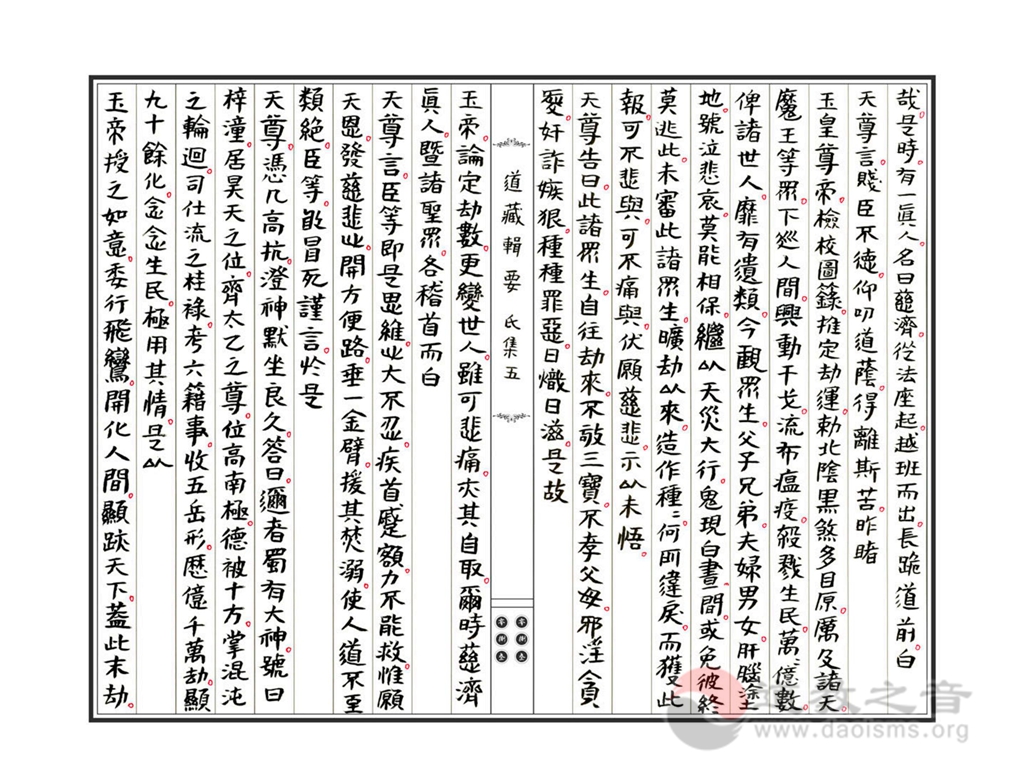 哉是時有一眞人名曰慈濟從法座起越班而出長跪道前白
天尊言賤臣不德仰叨道蔭得離斯苦昨睹
玉皇尊帝檢校圖籙推定劫運勅北陰黑煞多目原厲及諸天
魔王等眾下廵人間興動干戈流布瘟疫殺戮生民萬億數
俾諸世人靡有遺類今觀眾生父子兄弟夫婦男女肝腦塗
地號泣悲哀莫能相保繼以天災大行鬼現白晝間或免彼終
莫逃此未審此諸眾生曠劫以來造作種種何罔違戾而獲此
報可不悲與可不痛與伏願慈悲示以未悟
天尊告曰此諸眾生自往劫來不敬三寶不孝父母邪淫貪
愛奸詐嫉狠種種罪惡日熾日滋是故
道藏輯要 氐集五
玉帝論定劫數更變世人雖可悲痛夾其自取爾時慈濟
眞人暨諸聖眾各稽首而白
天尊言臣等即是思維此大不忍疾首蹙額力不能救惟願
天恩發慈悲此開方便路垂一金臂援其焚溺使人道不至
類絕臣等敢冒死謹言於是
天尊憑几高抗澄神默坐良久答曰邇者蜀有大神號曰
梓潼居昊天之位齊太乙之尊位高南極德被十方掌混沌
之輪迴司仕流之桂祿考六籍事收五岳形歷億千萬劫顯
九十餘化念念生民極用其情是以
玉帝授之如意委行飛鸞開化人間顯跡天下葢此末劫
道教之音
www.daoisms.org